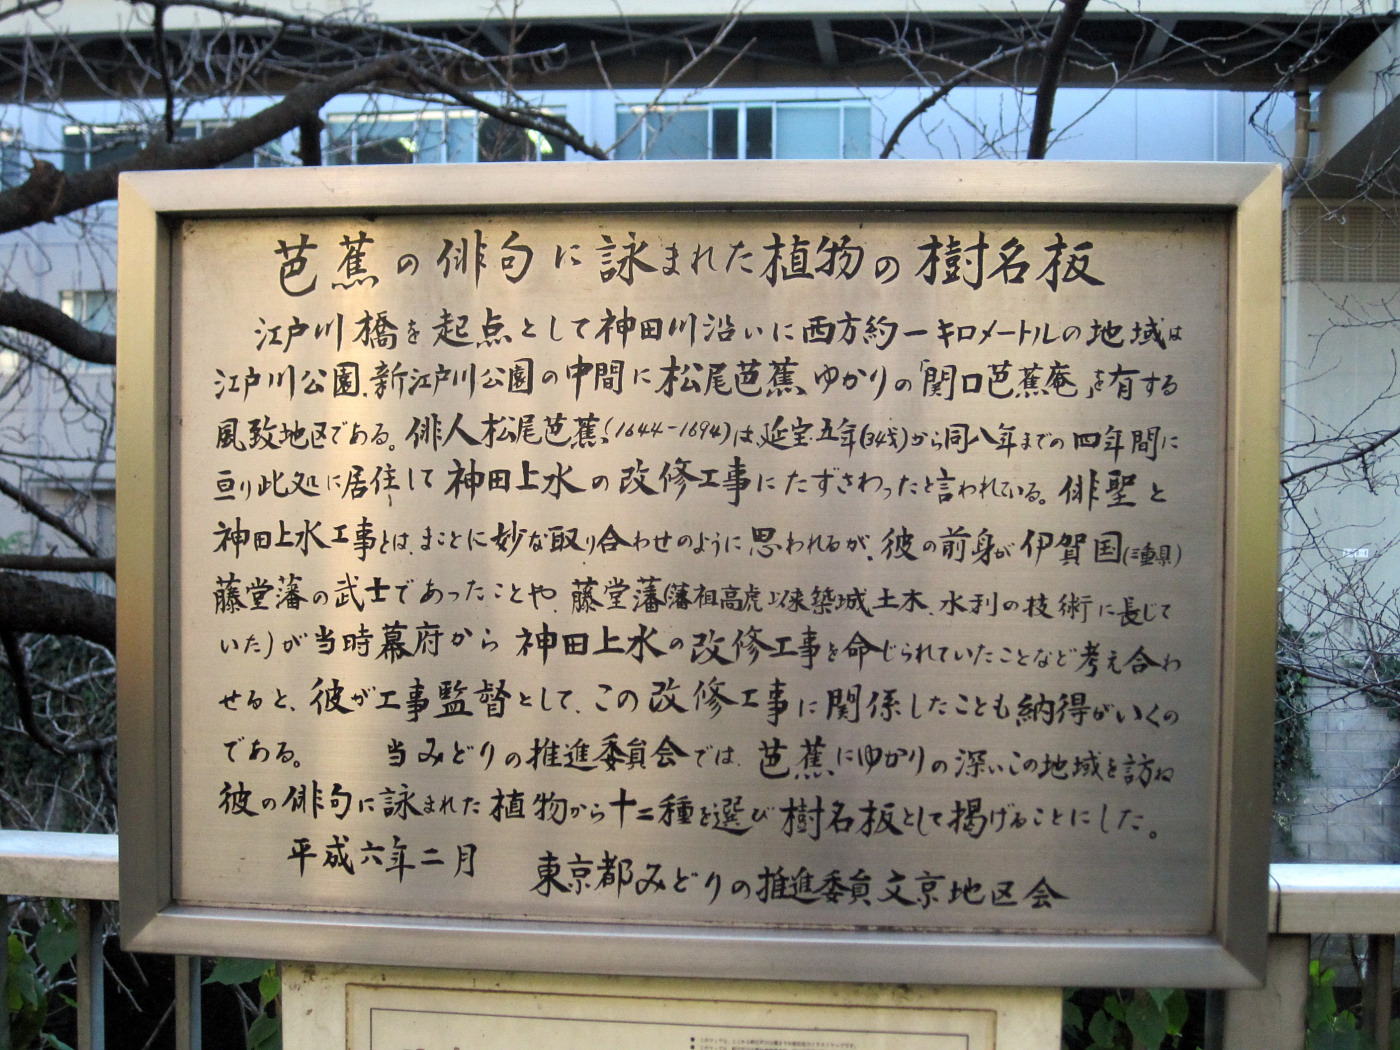 芭蕉の俳句に詠まれた植物の樹名板
江戸川橋を起点として神田川沿いに西方約一キロメートルの地域は
江戸川公園、新江戸川公園の中間に松尾芭蕉ゆかりの「関口芭蕉庵」を有する
風致地区である。俳人松尾芭蕉(1644-1694)は、延宝五年(34才)から同八年までの四年間に
亘り此処に居住して神田上水の改修工事にたずさわったと言われている。俳聖と
神田上水工事とは、まことに妙な取り合わせのように思われるが、彼の前身が伊賀国(三重県)
藤堂藩の武士であったことや、藤堂藩(藩祖高虎以来築城土木、水利の技術に長じて
いた)が当時幕府から神田上水の改修工事を命じられていたことなど考え合わ
せると、彼が工事監督として、この改修工事に関係したことも納得がいくの
である。 当みどりの推進委員会では、芭蕉にゆかりの深いこの地域を訪ね
彼の俳句に詠まれた植物から十二種を選び樹名板として掲げることにした。
平成六年二月 東京都みどりの推進委員文京地区会